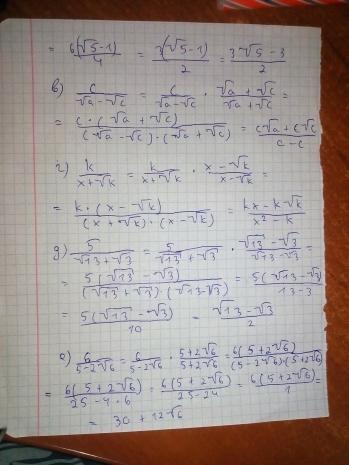 = 6(√5-1)/4 = 3(√5-1)/2 = 3√5-3/2
в) c/√a-√c = c/√a-√c · √a+√c/√a+√c =
= c·(√a+√c)/(√a-√c)·(√a+√c) = c√a+c√c/a-c
г) k/x+√k = k/x+√k · x-√k/x-√k =
= k·(x-√k)/(x+√k)·(x-√k) = kx-k√k/x²-k
д) 5/√13+√3 = 5/√13+√3 · √13-√3/√13-√3 =
= 5(√13-√3)/(√13+√3)·(√13-√3) = 5(√13-√3)/13-3
= 5(√13-√3)/10 = √13-√3/2
е) 6/5-2√6 = 6/5-2√6 · 5+2√6/5+2√6 = 6(5+2√6)/(5-2√6)·(5+2√6
= 6(5+2√6)/25-4·6 = 6(5+2√6)/25-24 = 6(5+2√6)/1 =
= 30+12√6